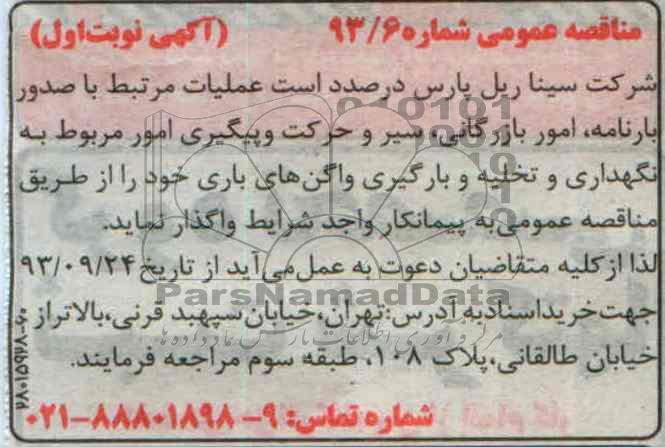 مناقصه عمومی شماره ۹۳/۶ (آگهی نوبت اول)
شرکت سینا ریل پارس درصدد است عملیات مرتبط با صدور
بارنامه، امور بازرگانی، سیر و حرکت وپیگیری امور مربوط به
نگهداری و تخلیه و بارگیری واگن‌های باری خود را از طریق
مناقصه عمومی به پیمانکار واجد شرایط واگذار نماید.
لذا از کلیه متقاضیان دعوت به عمل می‌آید از تاریخ ۹۳/۰۹/۲۴
جهت خرید اسناد به آدرس: تهران، خیابان سپهبد قرنی، بالاتر از
خیابان طالقانی، پلاک ۱۰۸، طبقه سوم مراجعه فرمایند.
شماره تماس: ۹-۰۲۱-۸۸۸۰۱۸۹۸
ParsNamadData
مرکز فرآوری اطلاعات پارس نماد داده ها